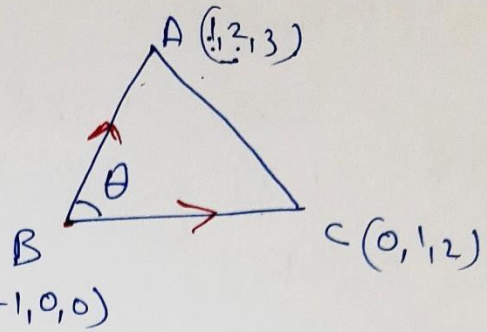 A (1,2,3)
θ
B
C (0,1,2)
-1,0,0)